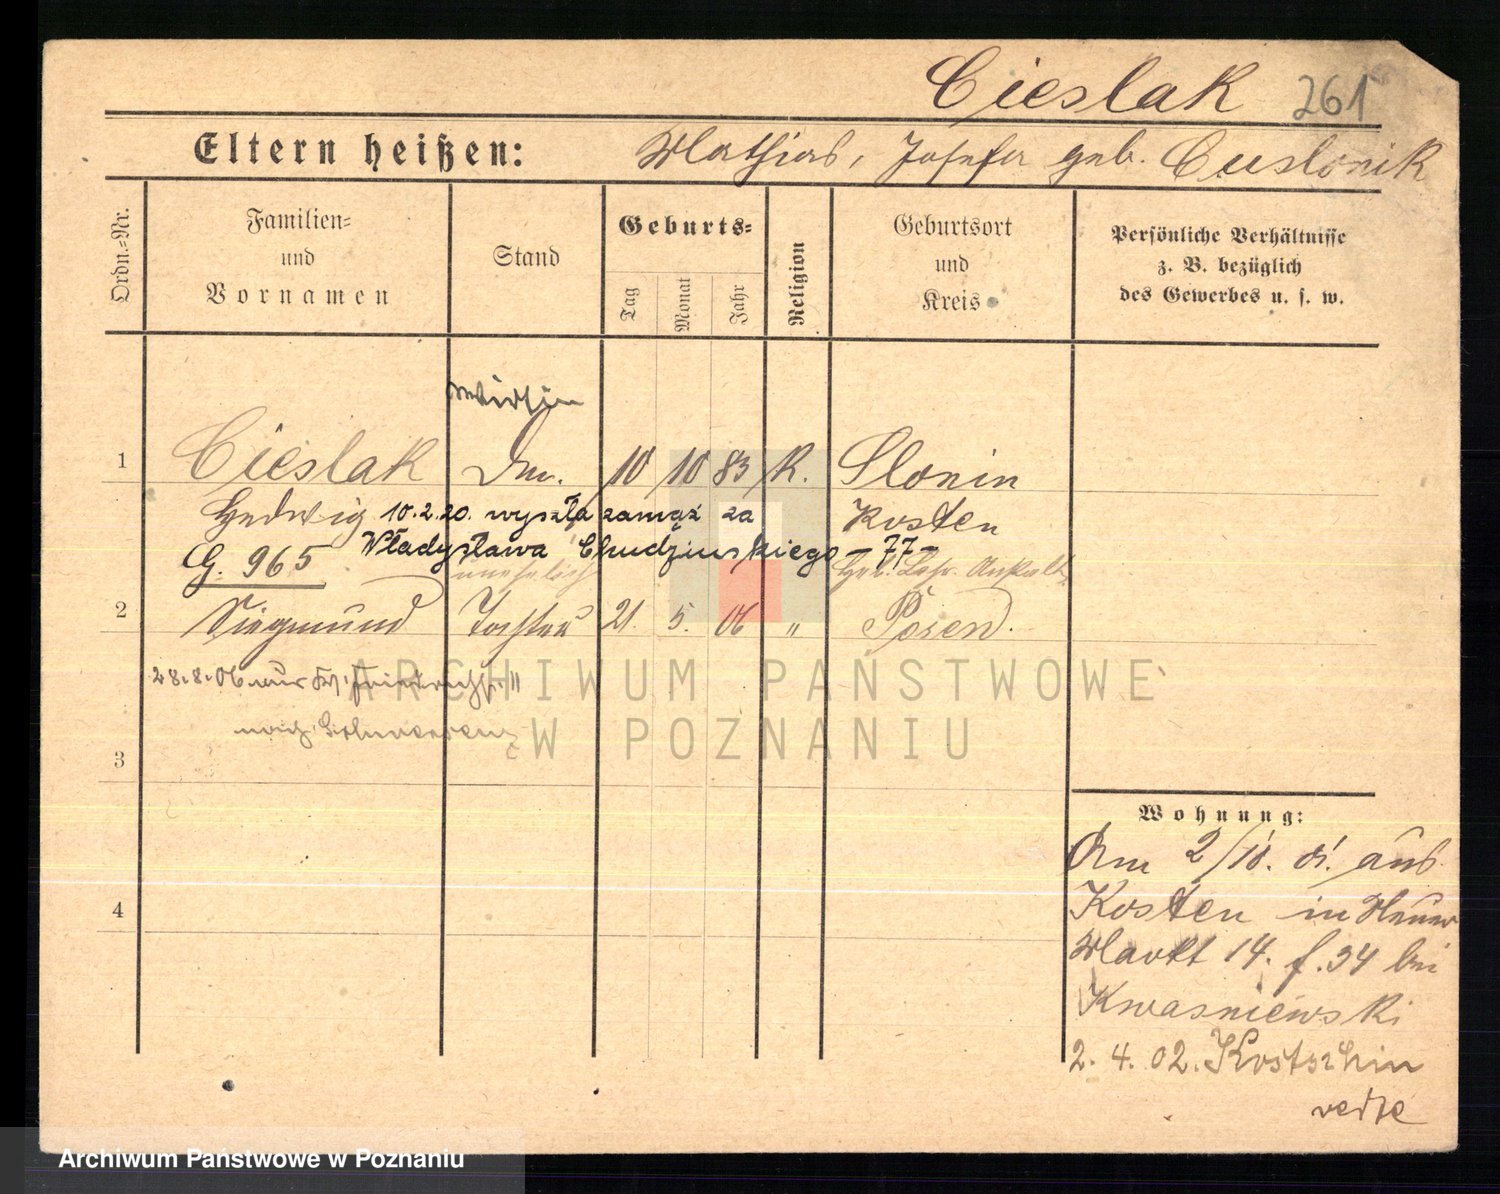 Cieslak 261
Eltern heißen: Mathias, Josefa geb.
Ordn.=Nr.
Familien=
und
Vornamen
Stand
Geburts=
Tag
Monat
Jahr
Religion
Geburtsort
und
Kreis
Persönliche Verhältnisse
z. B. bezüglich
des Gewerbes u. s. w.
1 Cieslak 10 10 83 K. Slonin
Hedwig 10.2.20. wyszła zamąż za Kosten
G. 965 Władysława Chudzinskiego -77-
unehelich
2 Siegmund 21. 5. 06 " Posen.
28.8.06
ARCHIWUM PAŃSTWOWE
W POZNANIU
3
4
Wohnung:
Am 2/10. 01. aus
Kosten in Neuer
Markt 14. f. 34 bei
Kwasniewski
2. 4. 02. Kostschin
Archiwum Państwowe w Poznaniu